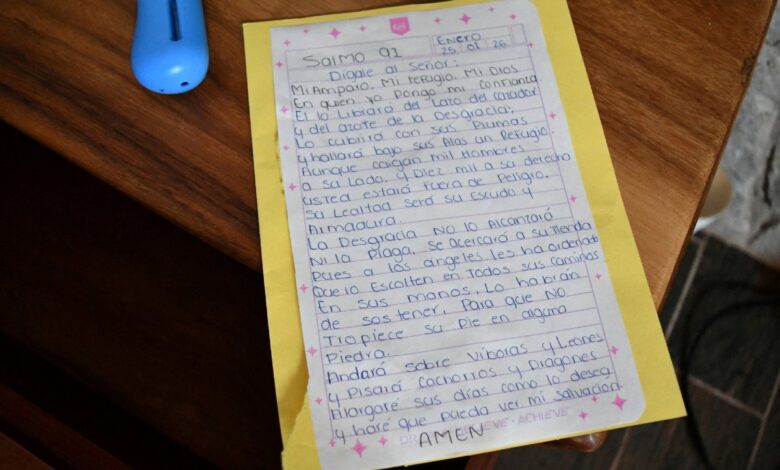 Salmo 91
Enero
25 01 26
Dígale al Señor:
Mi Amparo, Mi refugio, Mi Dios
En quien yo Pongo mi confianza
El lo Librará del Lazo del Cazador
y del azote de la Desgracia;
Lo cubrirá con sus Plumas
y hallará bajo sus Alas un Refugio.
Aunque caigan mil Hombres
a su Lado, y Diez mil a su derecha
usted estará fuera de Peligro,
su Lealtad será su Escudo y
Armadura.
La Desgracia No lo Alcanzará
Ni la Plaga, se Acercará a su Tienda
Pues a los ángeles les ha ordenado
Que lo Escolten en Todos sus caminos
En sus manos, Lo habrán
de sostener, Para que No
Tropiece su Pie en alguna
Piedra.
Andará sobre Víboras y Leones
y Pisará Cachorros y Dragones
Alargaré sus días como lo desea
y haré que pueda ver mi salvación.
ACHIEVE
AMEN